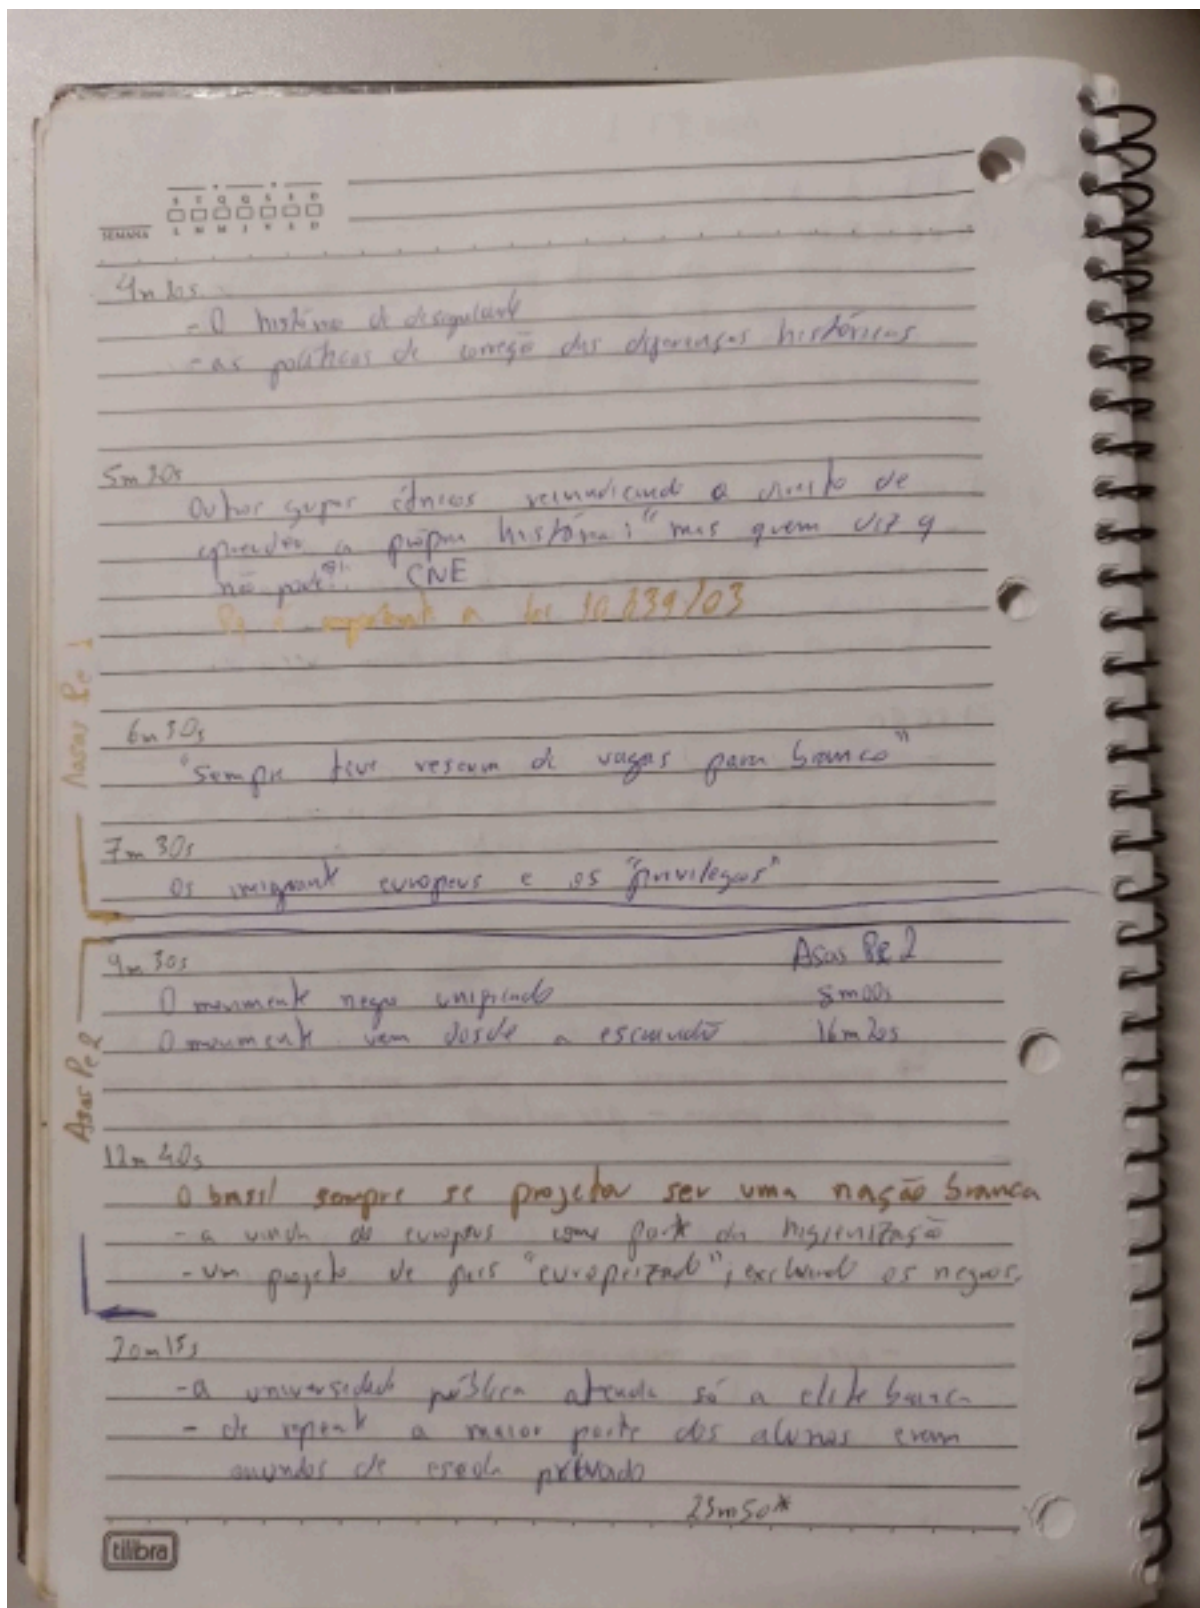 S T Q Q S S D
SEMANA L M M J V S D
4m 20s
- O história de desigualdade
- as políticas de correção das diferenças históricas
5m 20s
Outros grupos étnicos reinvidicando o direito de
aprender a própria história: "mas quem diz q
não pode?" CNE
Pq é importante a lei 10.639/03
6m 30s
"Sempre teve reserva de vagas para branco"
7m 30s
Os imigrante europeus e os "privilegios"
9m 30s Asas Pe 2
O movimento negro unificado 8m00s
O movimento vem desde a escravidão 16m20s
Asas Pe 2
12m 40s
O brasil sempre se projetou ser uma nação branca
- a vinda de europeus como parte da higienização
- um projeto de pais "europeizado"; excluindo os negros.
20m15s
- a universidade pública atendia só a elite branca
- de repente a maior parte dos alunos eram
oriundos de escola privado
25m50*
tilibra